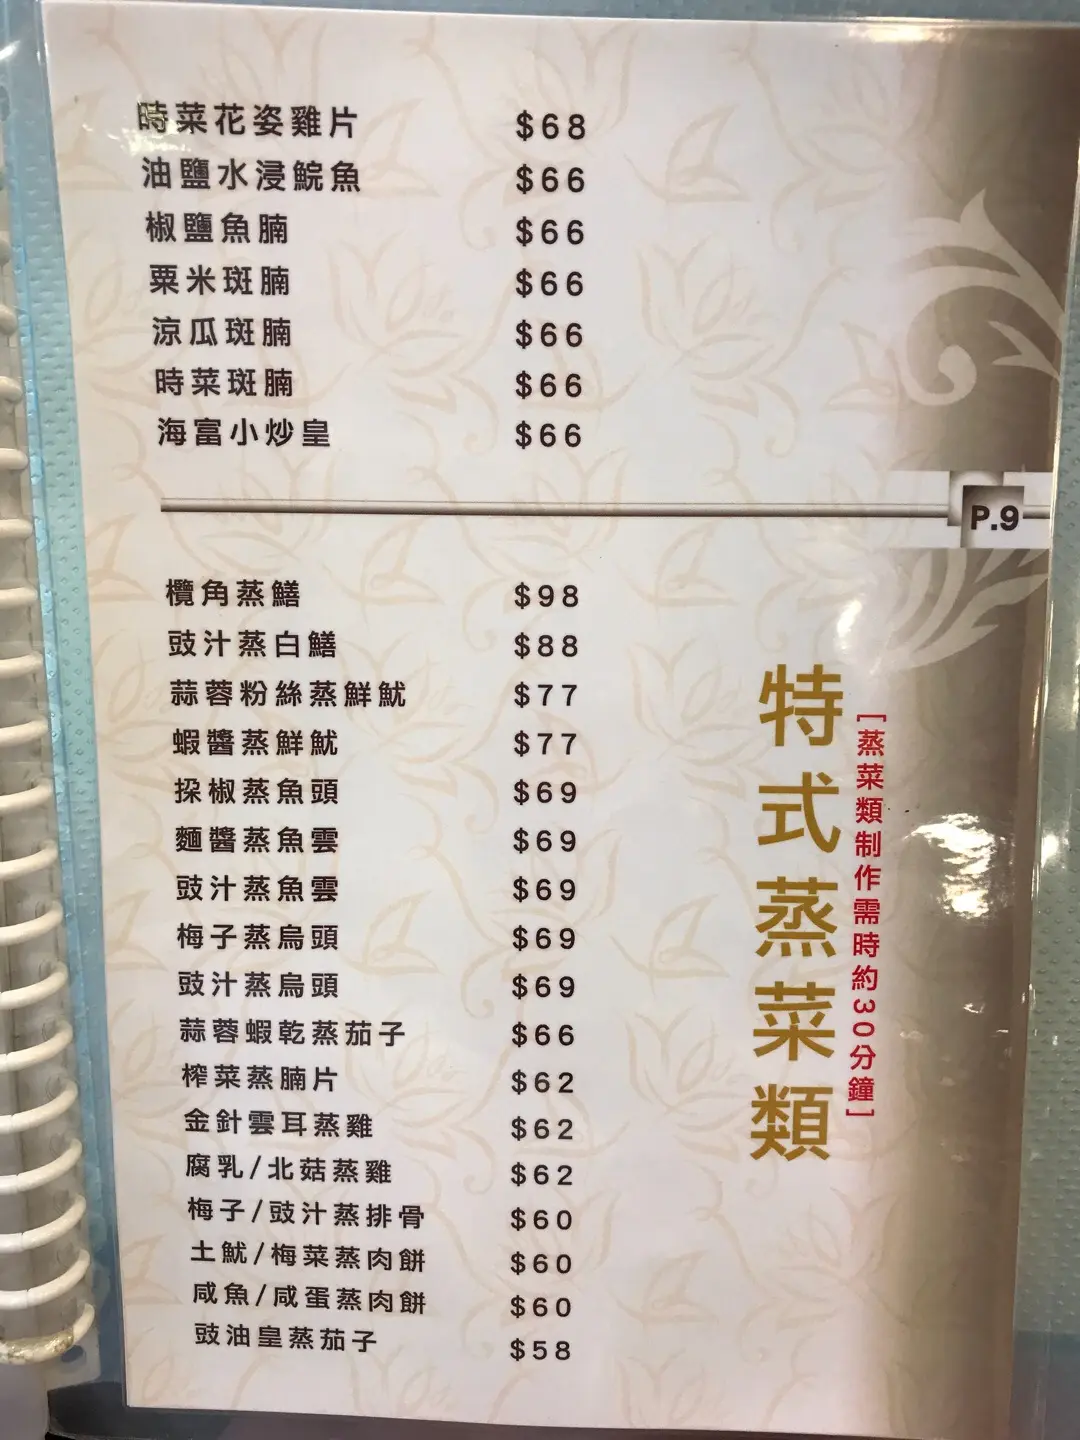 時菜花姿雞片 $68
油鹽水浸鯇魚 $66
椒鹽魚腩 $66
粟米斑腩 $66
涼瓜斑腩 $66
時菜斑腩 $66
海富小炒皇 $66
P.9
欖角蒸鱔 $98
豉汁蒸白鱔 $88
蒜蓉粉絲蒸鮮魷 $77
蝦醬蒸鮮魷 $77
採椒蒸魚頭 $69
麵醬蒸魚雲 $69
豉汁蒸魚雲 $69
梅子蒸烏頭 $69
豉汁蒸烏頭 $69
蒜蓉蝦乾蒸茄子 $66
榨菜蒸腩片 $62
金針雲耳蒸雞 $62
腐乳/北菇蒸雞 $62
梅子/豉汁蒸排骨 $60
土魷/梅菜蒸肉餅 $60
咸魚/咸蛋蒸肉餅 $60
豉油皇蒸茄子 $58
特式蒸菜類
[蒸菜類制作需時約30分鐘]